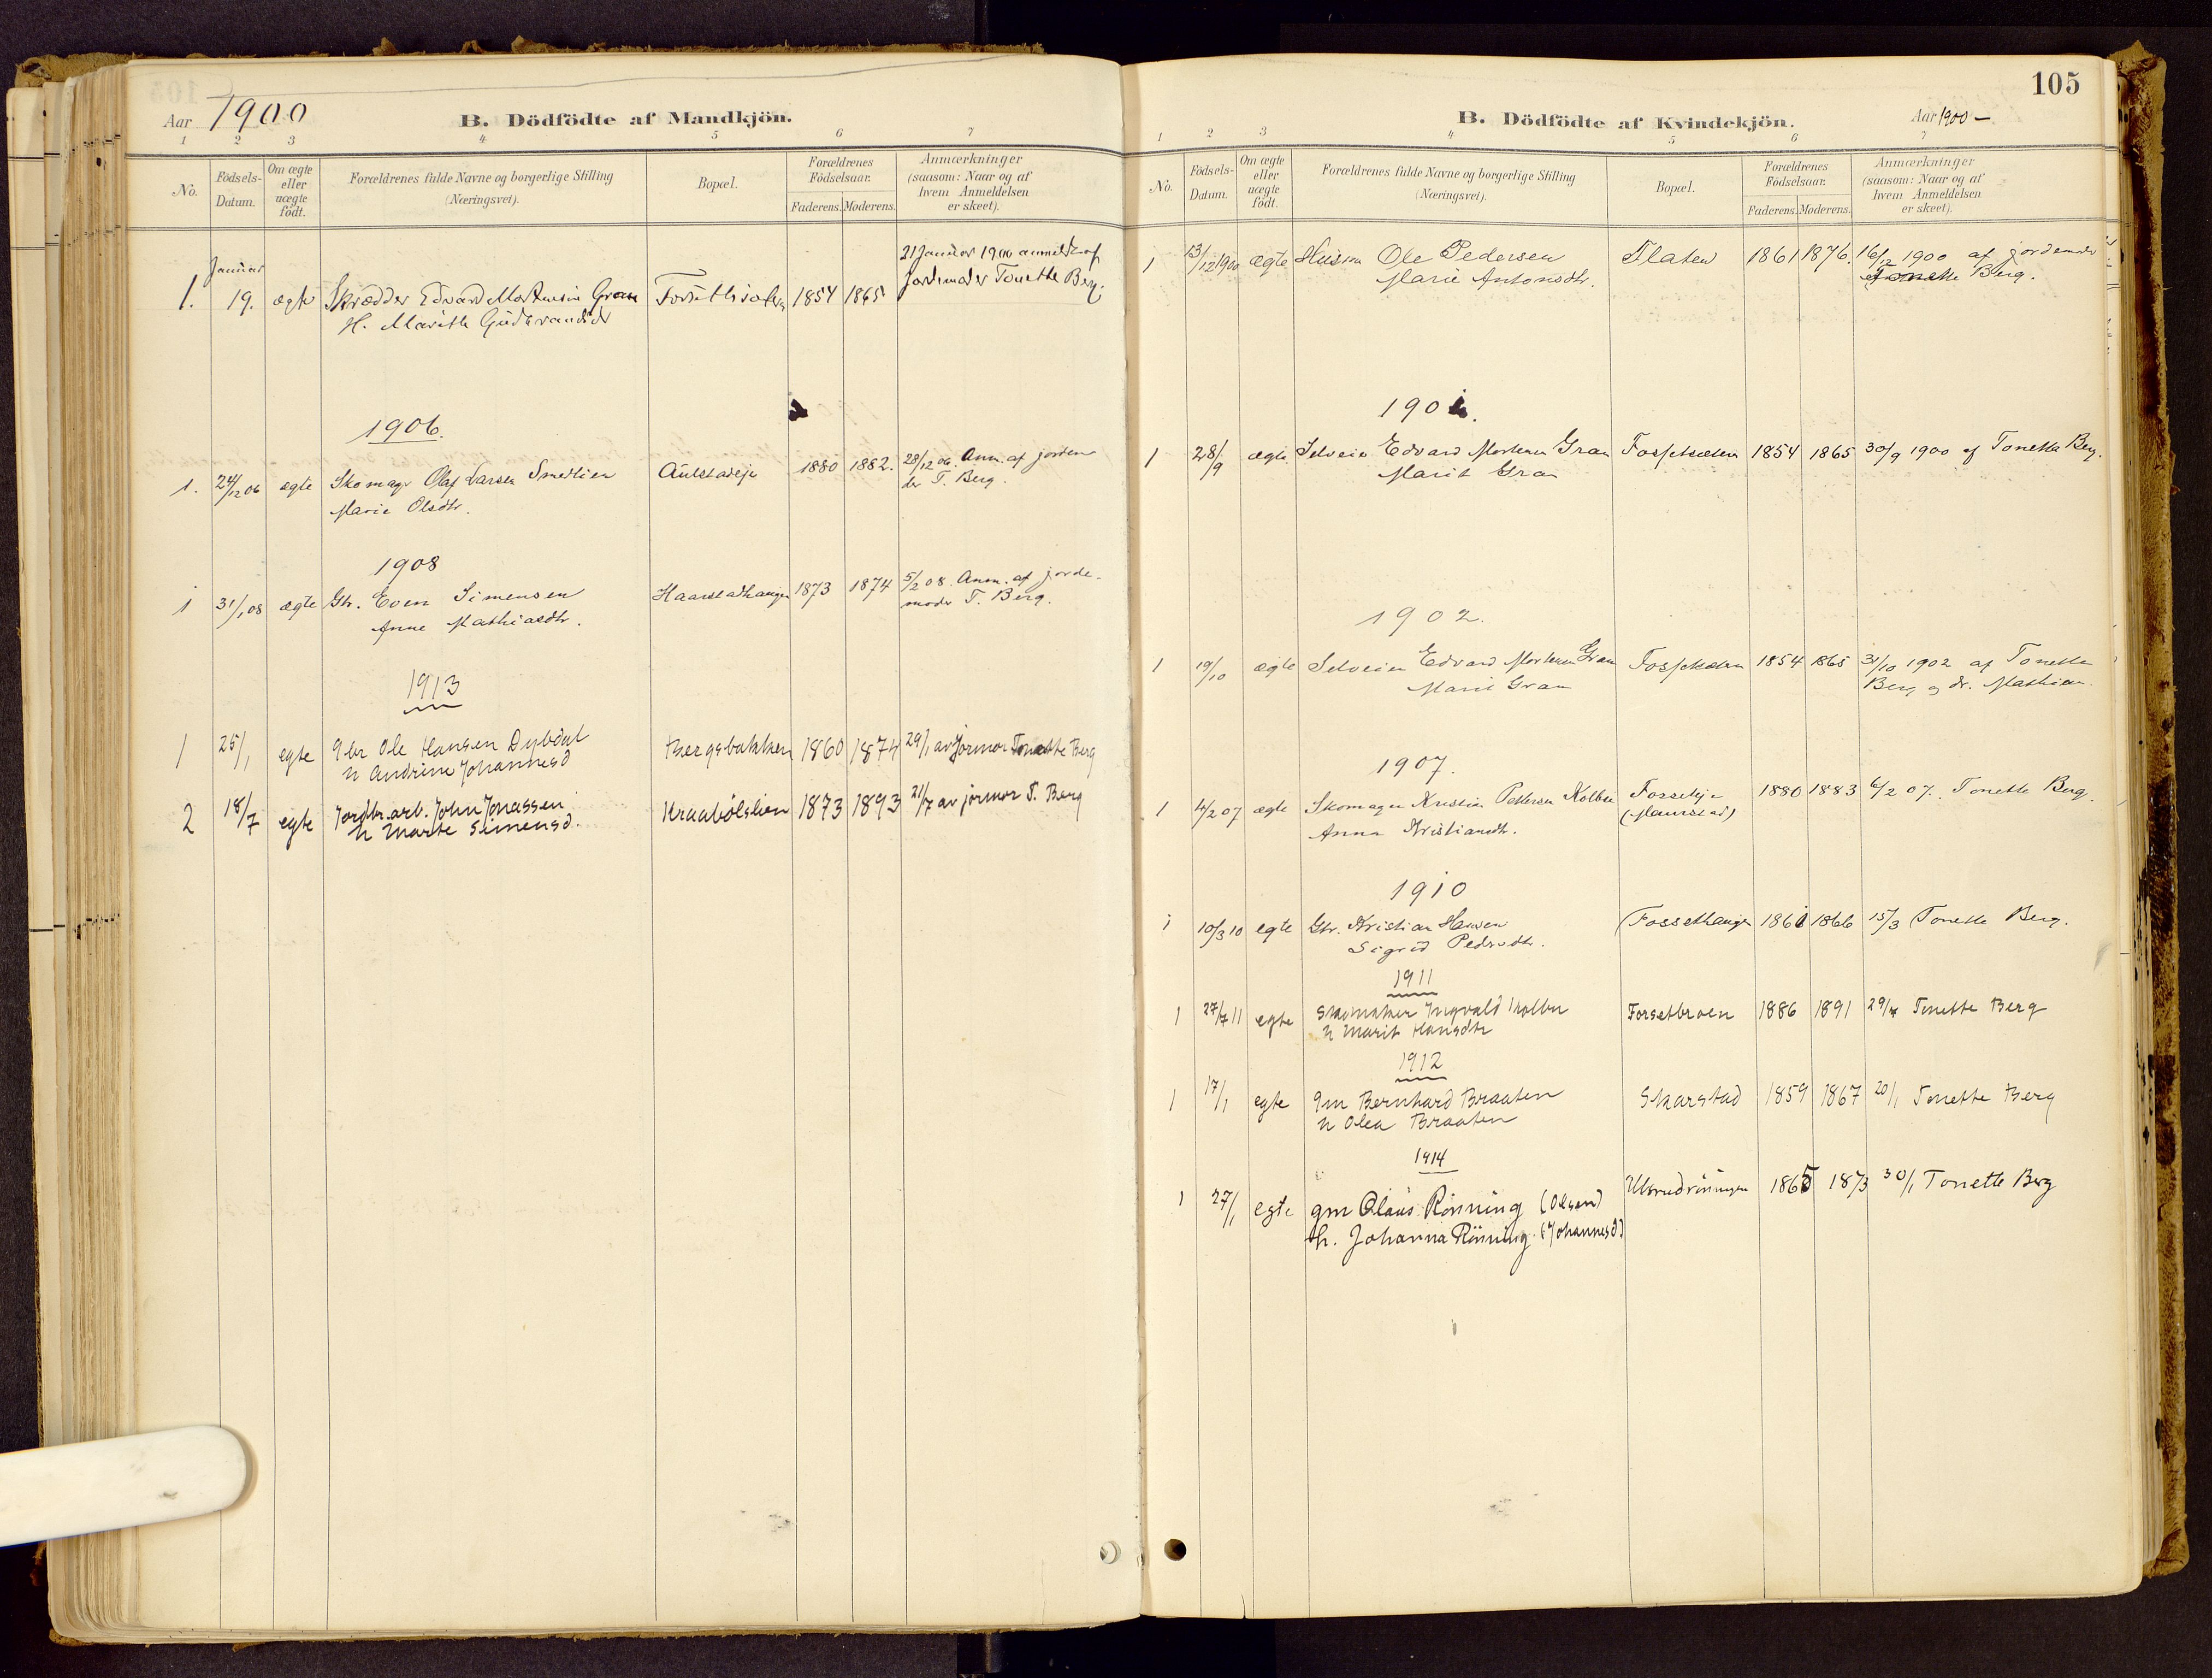 Aar 1900
B. Dödfödte af Mandkjön.
1 2 3 4 5 6 7
No.
Födsels-Datum.
Om ægte eller uægte födt.
Forældrenes fulde Navne og borgerlige Stilling (Næringsvei).
Bopæl.
Forældrenes Födselsaar.
Faderens. Moderens.
Anmærkninger (saasom: Naar og af hvem Anmeldelsen er skeet).
Januar 21 Januar 1900 anmeldt af
1. 19. ægte Skrædder Edvard Mortensen Gran 1854 1865 Jordemoder Tonette Berg.
H. Marithe Gudbrandsdr
1906.
1. 24/12 06 ægte Skomager Olaf Larsen Smedlien Aulstadeje 1880 1882. 28/12 06. Anm. af jordemo
Marie Olsdtr. der T. Berg.
1908
1 31/1 08 ægte Gbr. Even Simensen Haarstadhaugen 1873 1874 5/2 08. Anm. af jorde-
Anne Mathiasdtr. moder T. Berg.
1913
1 25/1 egte gbr Ole Hansen Dybdal Bergsbakken 1860 1874 29/1 av jormor Tonette Berg
h Andrine Johannesd
2 18/7 egte Jordbr.arb. John Jonassen Kraabölslien 1873 1893 21/7 av jormor T. Berg
h Marte Simensd.
105
B. Dödfödte af Kvindekjön.
Aar 1900 –
1 2 3 4 5 6 7
No.
Födsels-Datum.
Om ægte eller uægte födt.
Forældrenes fulde Navne og borgerlige Stilling (Næringsvei).
Bopæl.
Forældrenes Födselsaar.
Faderens. Moderens.
Anmærkninger (saasom: Naar og af hvem Anmeldelsen er skeet).
1 13/12 1900 ægte Husm Ole Pedersen Flaten 1861 1876. 16/12 1900 af jordemoder
Marie Antonsdtr. Tonette Berg.
1901.
1 28/9 ægte Selveier Edvard Mortensen Gran Fossetsæteren 1854 1865 30/9 1900 af Tonette Berg.
Marit Gran
1902.
1 19/10 ægte Selveier Edvard Mortensen Gran Fossetsæteren 1854 1865 31/10 1902 af Tonette
Marit Gran Berg og dr. Mathiesen.
1907.
1 4/2 07 ægte Skomager Kristian Pettersen Kolbu Fosseteje 1880 1883 6/2 07. Tonette Berg.
Anna Kristiansdtr. (Maurstad)
1910
1 10/3 10 egte Gbr. Kristian Hansen Fossethaugen 1861 1866 15/3 Tonette Berg.
Sigrid Pedersdtr.
1911
1 27/7 11 egte Skomaker Ingvald Kolbu Forsetbroen 1886 1891 29/7 Tonette Berg
h Marit Hansdtr
1912
1 17/1 egte gm Bernhard Braaten Skarstad 1859 1867 20/1 Tonette Berg
h Olea Braaten
1914
1 27/1 egte gm Olaus Rönning (Olsen) Ulsrudröningen 1865 1873 30/1 Tonette Berg
h. Johanna Rönning (Johannesd)